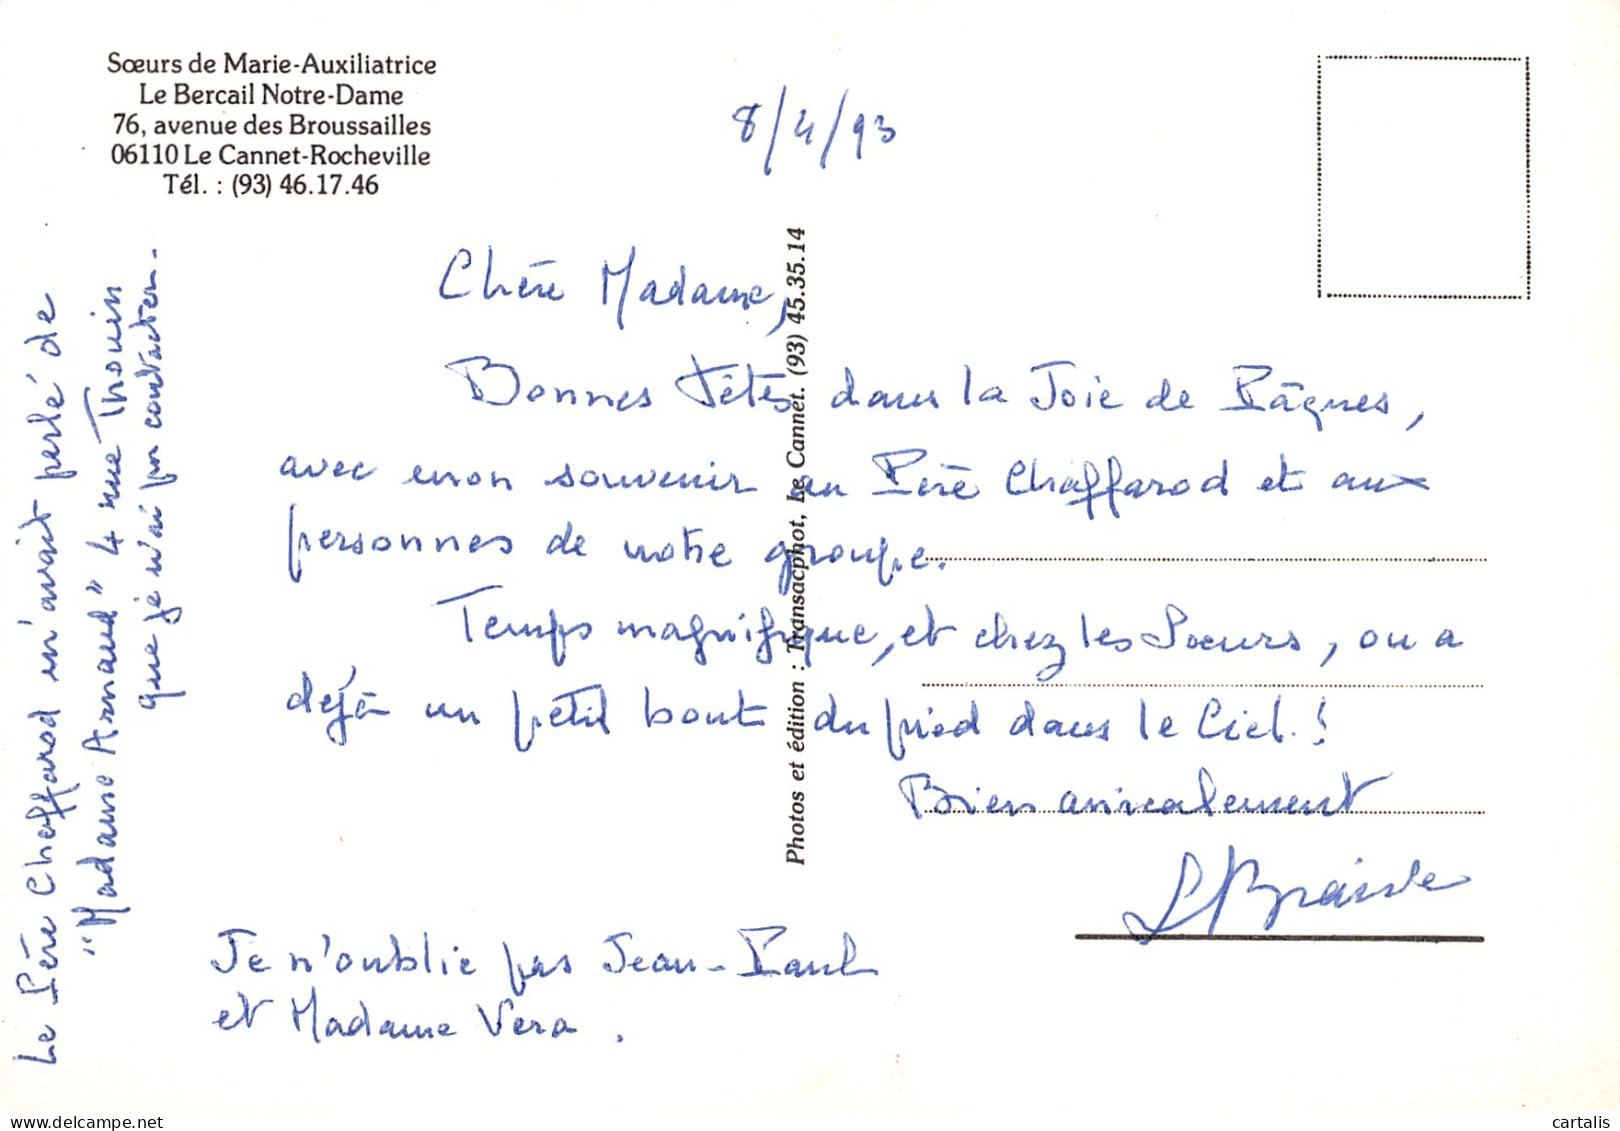 Sœurs de Marie-Auxiliatrice
Le Bercail Notre-Dame
76, avenue des Broussailles
06110 Le Cannet-Rocheville
Tél. : (93) 46.17.46
8/4/93
Chère Madame,
Bonnes fêtes dans la Joie de Pâques,
avec mon souvenir au Père Chaffarod et aux
personnes de notre groupe.
Temps magnifique, et chez les Sœurs, on a
déjà un petit bout du pied dans le Ciel !
Bien amicalement
Je n'oublie pas Jean-Paul
et Madame Vera.
Le Père Chaffarod m'avait parlé de
"Madame Arnaud" 4 rue Thouin
que je n'ai pu contacter.
Photos et édition : Transacphot, Le Cannet. (93) 45.35.14
cartalis